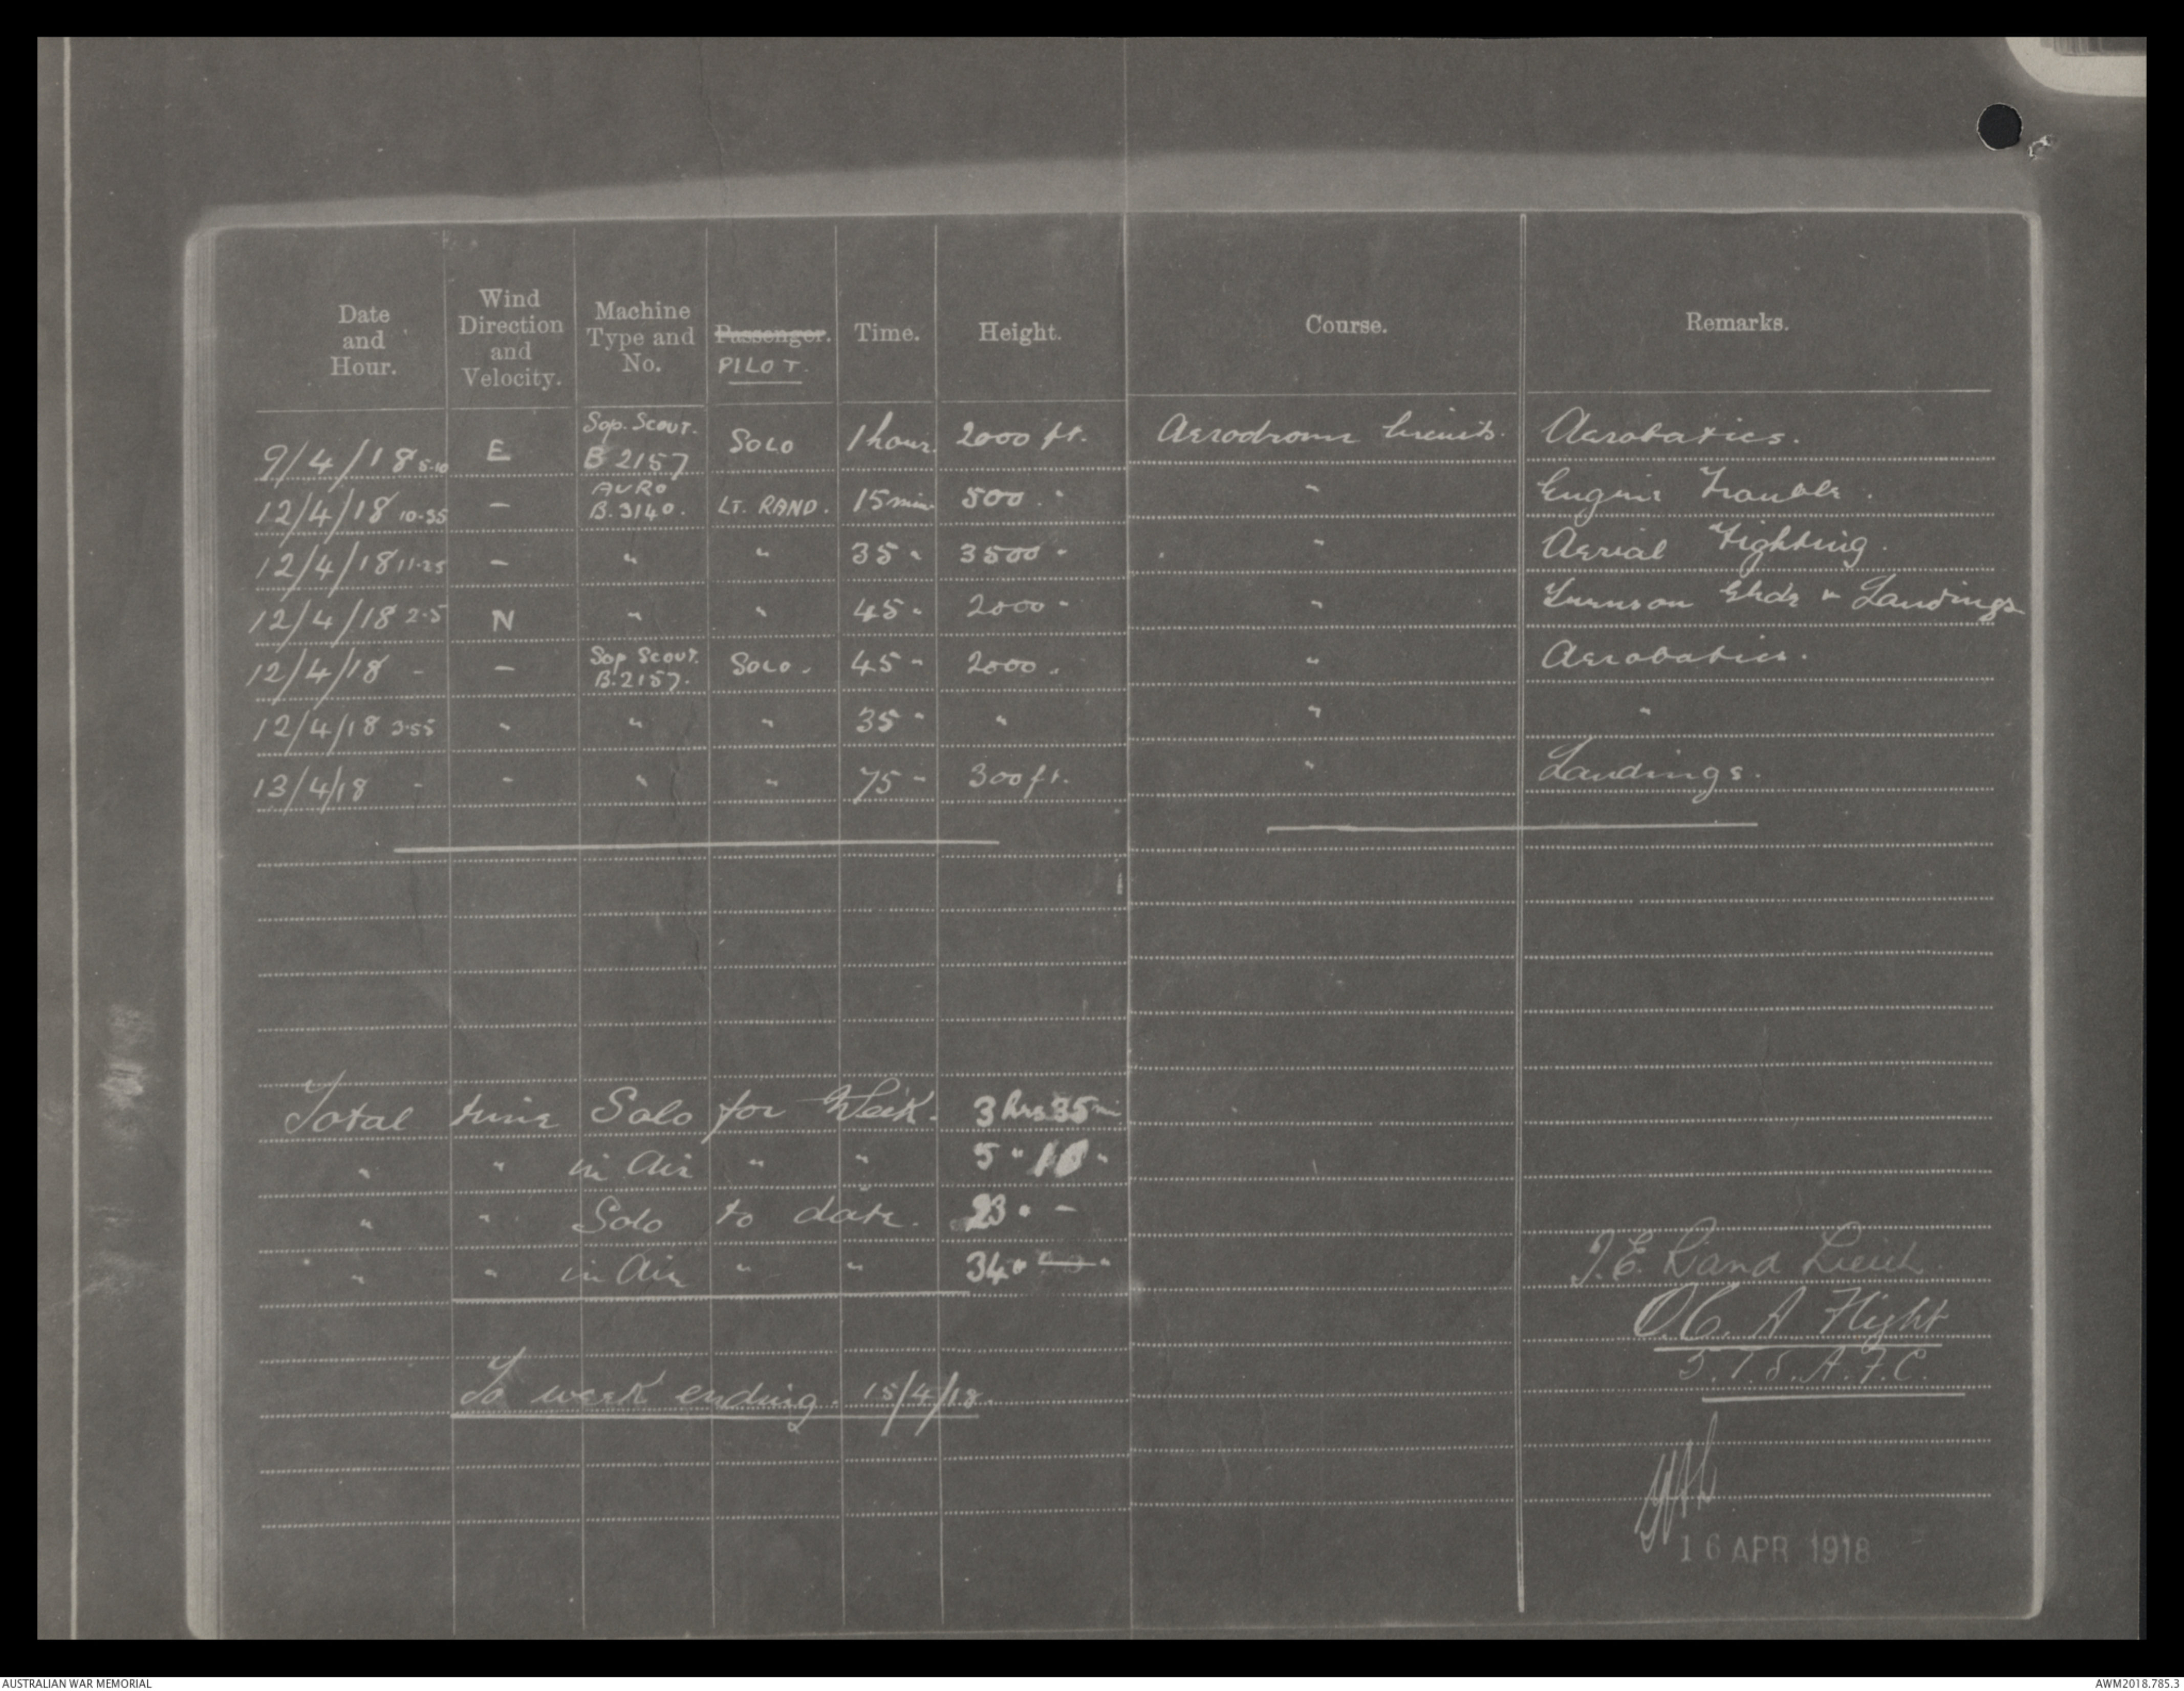 Date and Hour. Wind Direction and Velocity. Machine Type and No. Passenger. PILOT. Time. Height. Course. Remarks.
9/4/18 5-10 E Sop. Scout. B 2157 SOLO 1 hour. 2000 ft. Aerodrome Circuits. Aerobatics.
12/4/18 10-35 - AVRO B.3140. LT. RAND. 15 min 500 " " Engine Trouble.
12/4/18 11-25 - " " 35 " 3500 " " Aerial Fighting.
12/4/18 2-5 N " " 45 " 2000 " " Turns on Glide & Landings
12/4/18 - - Sop Scout. B.2157. SOLO. 45 " 2000 " " Aerobatics.
12/4/18 3-55 " " " 35 " " " "
13/4/18 - " " " 75 " 300 ft. " Landings.
Total time Solo for Week. 3 hrs 35 mi
" " in Air " " 5 " 10 "
" " Solo to date. 23 " -
" " in Air " " 34 " "
To week ending. 15/4/18.
J.E. Rand Lieut.
O.C. A Flight
5.T.S.A.F.C.
16 APR 1918
AUSTRALIAN WAR MEMORIAL
AWM2018.785.3